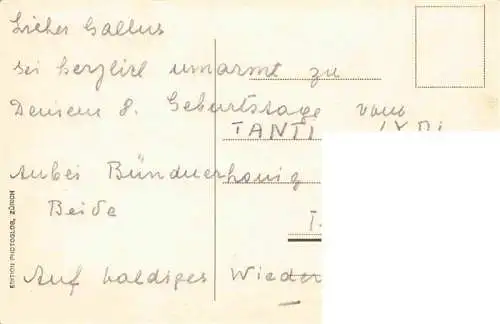 Lieber Gallus
sei herzlich umarmt zu
Deinem 8. Geburtstage vom
TANTI
Anbei Bündnerhonig
Beide
Auf baldiges Wieder
EDITION PHOTOGLOB, ZÜRICH